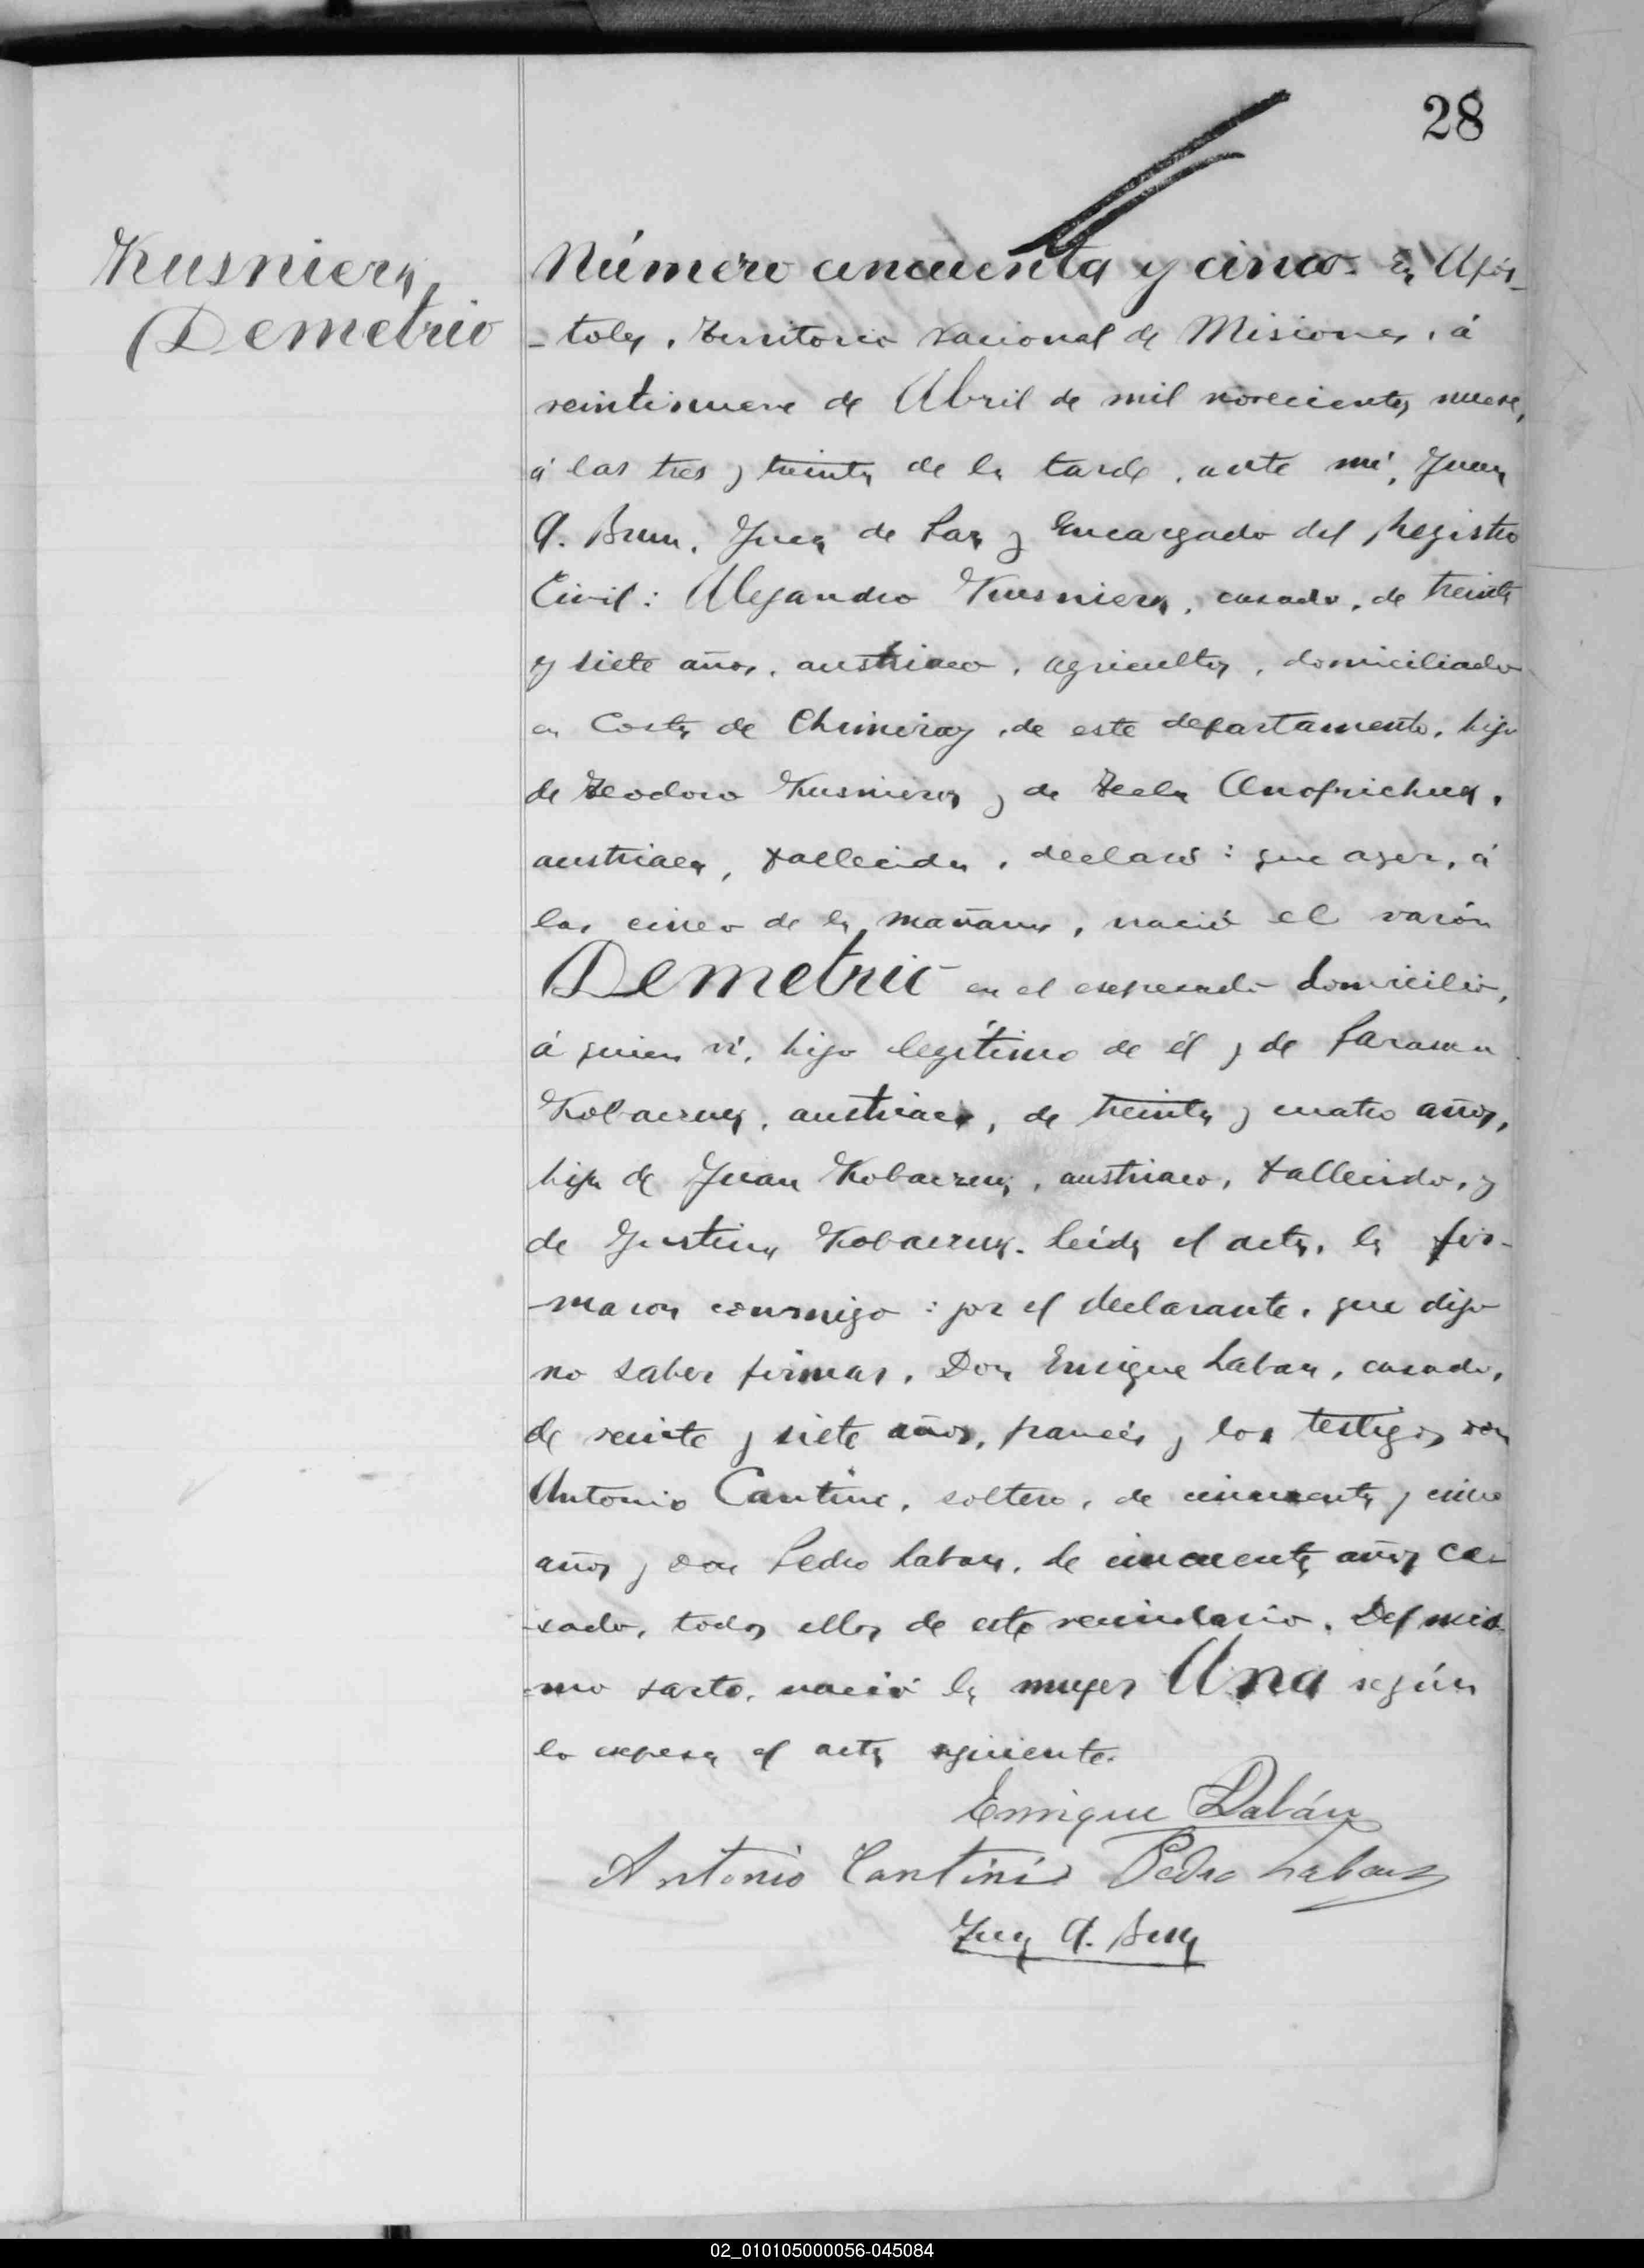 28
Kusnierz,
Demetrio
Número cincuenta y cinco. En Após-
-toles, Territorio Nacional de Misiones, á
veintinueve de Abril de mil novecientos nueve,
á las tres y treinta de la tarde, ante mí, Juan
A. Brun, Juez de Paz y Encargado del Registro
Civil: Alejandro Kusnierz, casado, de treinta
y siete años, austriaco, agricultor, domiciliado
en Costa de Chimiray, de este departamento, hijo
de Teodoro Kusnierz y de Tecla
austriacos, fallecidos, declaró: que ayer, á
las cinco de la mañana, nació el varón
Demetrio en el expresado domicilio,
á quien ví, hijo legítimo de él y de
austriaca, de treinta y cuatro años,
hija de Juan austriaco, fallecido, y
de Justina Leída el acta, la fir-
-maron conmigo: por el declarante, que dijo
no saber firmar, Don Enrique Laban, casado,
de veinte y siete años, francés y los testigos don
Antonio Cantini, soltero, de cincuenta y cinco
años y don Pedro Laban, de cincuenta años ca-
-sado, todos ellos de este vecindario. Del mis-
-mo parto, nació la mujer Ana según
lo expresa el acta siguiente.
Enrique Labán
Antonio Cantini Pedro Laban
Juan A. Brun
02_010105000056-045084